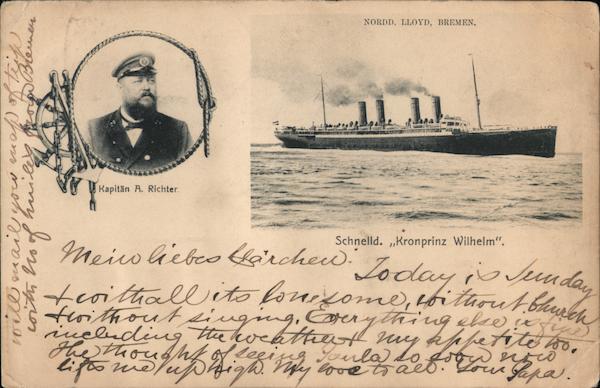 NORDD. LLOYD, BREMEN.
Kapitän A. Richter.
Schnelld. „Kronprinz Wilhelm".
Mein liebes Clärchen.
Today is Sunday
& with all its lonesome, without Church
& without singing. Everything else is fine
including the weather & my appetite too.
The thought of seeing so soon now
lifts me up high. My love to all. Your Papa.
will mail you map of trip
with No of miles from Bremen